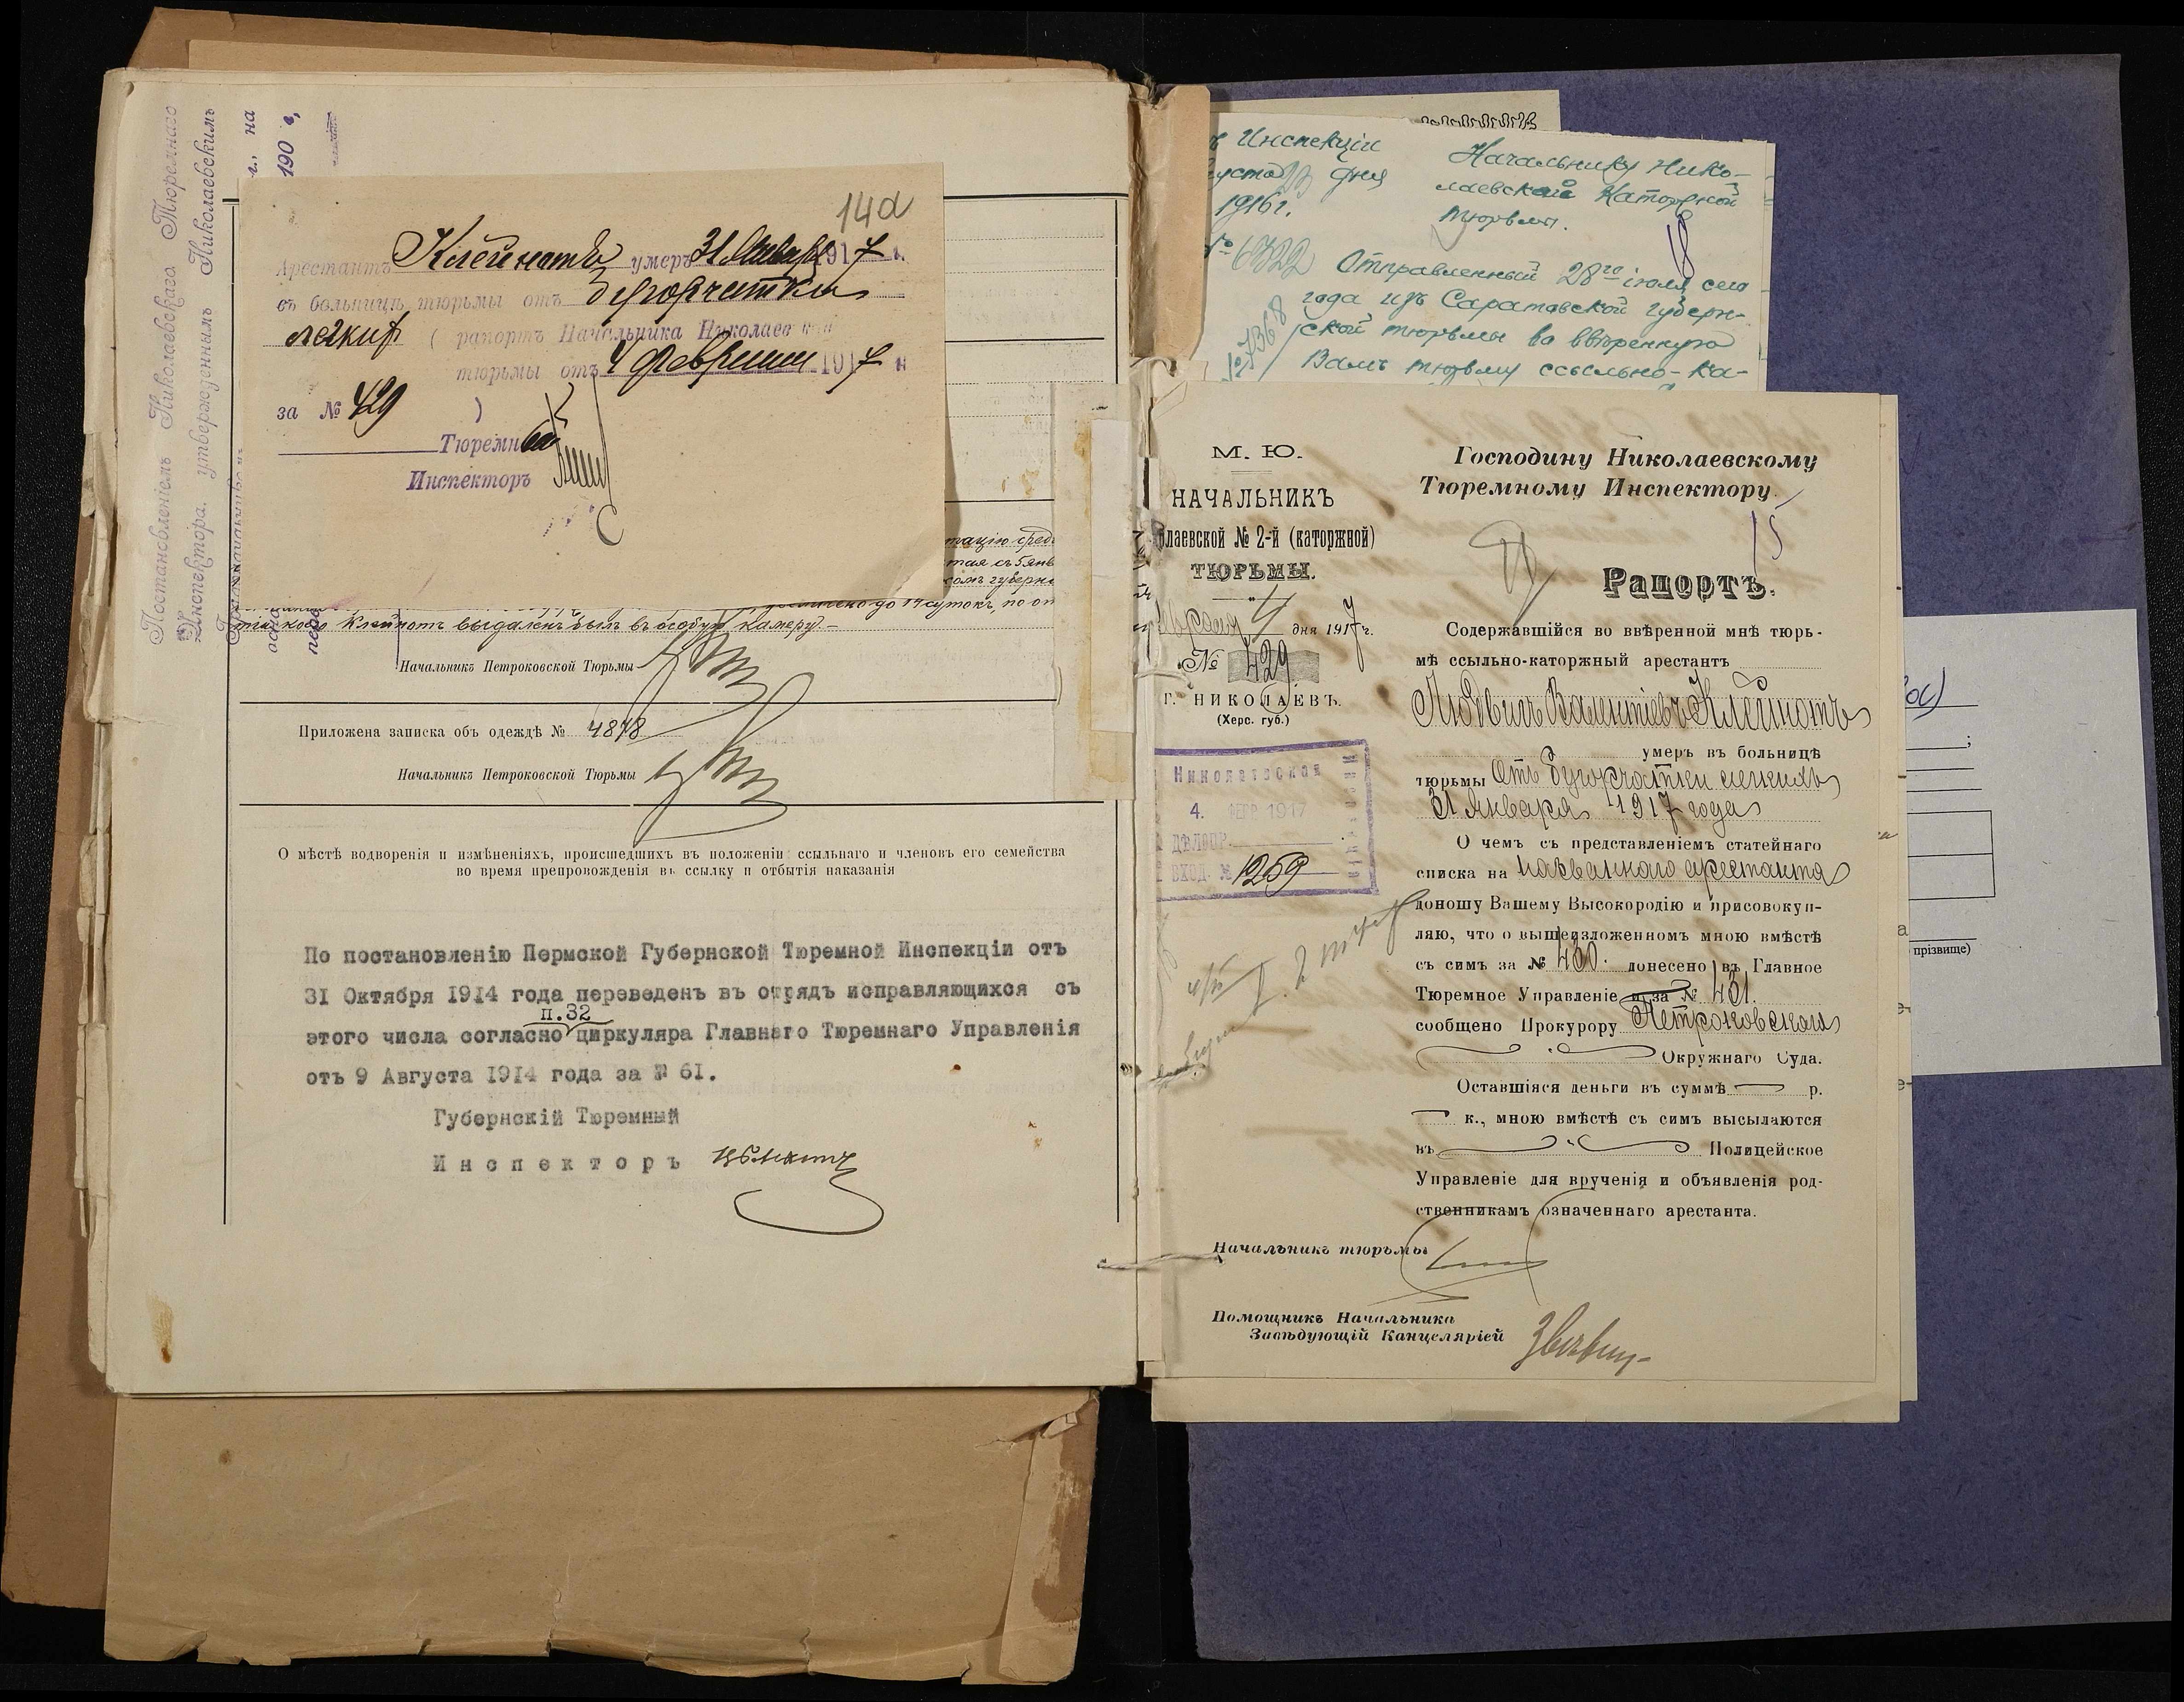 Постановленіемъ Николаевскаго Тюремнаго
Инспектора, утвержденнымъ Николаевскимъ
г., на
190 г.,
14а
Арестантъ Клейнотъ умеръ 31 Января 1917 г.
въ больницѣ тюрьмы отъ бугорчатки
легкихъ ( рапортъ Начальника Николаевской
тюрьмы отъ 4 Февраля 1917 г.
за № 429 )
Тюремный
Инспекторъ
тацію сред
тая съ 5 янв
ком губерн
до 14 сутокъ, по от
Клейнотъ выдаленъ былъ въ особую камеру.-
Начальникъ Петроковской Тюрьмы
Приложена записка объ одеждѣ № 4878
Начальникъ Петроковской Тюрьмы
О мѣстѣ водворенія и измѣненіяхъ, происшедшихъ въ положеніи ссыльнаго и членовъ его семейства
во время препровожденія въ ссылку и отбытія наказанія
По постановленію Пермской Губернской Тюремной Инспекціи отъ
31 Октября 1914 года переведенъ въ отрядъ исправляющихся съ
п.32
этого числа согласно циркуляра Главнаго Тюремнаго Управленія
отъ 9 Августа 1914 года за № 61.
Губернскій Тюремный
Инспекторъ
ъ Инспекціи
густа 23 дня
1916 г.
№ 6322
№ 7368
Начальнику Нико-
лаевской Каторжной
тюрьмы.
18
Отправленный 28го іюля сего
года изъ Саратовской губерн-
ской тюрьмы во ввѣренную
Вамъ тюрьму ссыльно-ка-
М. Ю.
НАЧАЛЬНИКЪ
лаевской № 2-й (каторжной)
ТЮРЬМЫ.
4 дня 1917 г.
№ 429
Г. НИКОЛАЕВЪ.
(Херс. губ.)
Николаевская
4. ФЕВР 1917
ДѢЛОПР.
ВХОД. № 1259
Господину Николаевскому
Тюремному Инспектору.
15
Рапортъ.
Содержавшійся во ввѣренной мнѣ тюрь-
мѣ ссыльно-каторжный арестантъ
Людвигъ Валентіевъ Клейнотъ
умеръ въ больницѣ
тюрьмы отъ бугорчатки легкихъ
31 Января 1917 года
О чемъ съ представленіемъ статейнаго
списка на названнаго арестанта
доношу Вашему Высокородію и присовокуп-
ляю, что о вышеизложенномъ мною вмѣстѣ
съ симъ за № 430. донесено въ Главное
Тюремное Управленіе и за № 431.
сообщено Прокурору Петроковскаго
Окружнаго Суда.
Оставшіяся деньги въ суммѣ р.
к., мною вмѣстѣ съ симъ высылаются
въ Полицейское
Управленіе для врученія и объявленія род-
ственникамъ означеннаго арестанта.
Начальникъ тюрьмы
Помощникъ Начальника
Завѣдующій Канцеляріей
прізвище)